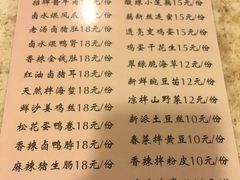 招牌酱牛肉
卤水煨凤爪
老汤卤猪肚18元/份
卤水煨鸭肾18元/份
香辣金钱肚18元/份
红油卤猪耳18元/份
天然拌海蜇18元/份
鲜沙姜鸡丝18元/份
松花蛋鸭卷18元/份
香辣卤鸭脖18元/份
麻辣猪生肠18元/份
酸辣小莲藕15元/份
藕新丝连索15元/份
透亮雯鸡蒌15元/份
鸡蛋干花生15元/份
翠绿脆海草12元/份
新鲜豌豆苗12元/份
凉拌山野菜12元/份
新派土豆丝10元/份
春菜拌黄豆10元/份
香辣拌粉皮10元/份